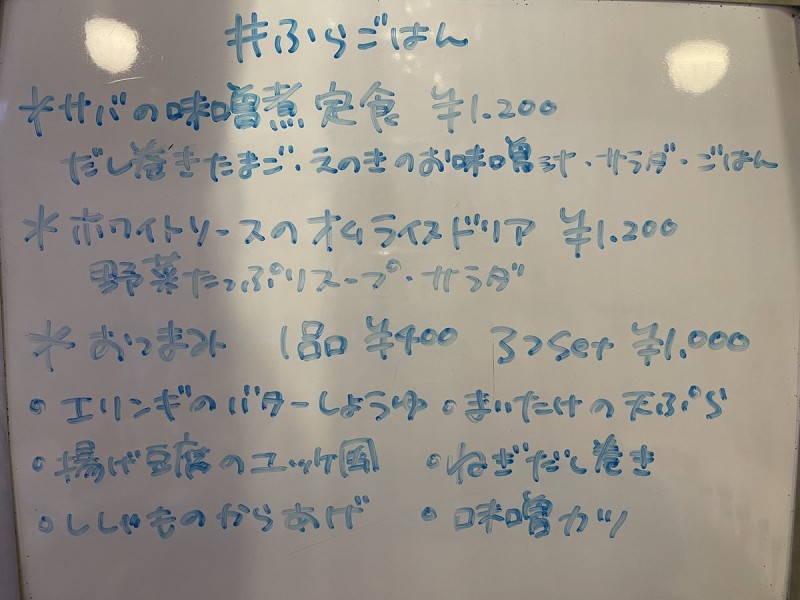 #ふらごはん
*サバの味噌煮定食 ¥1.200
だし巻きたまご・えのきのお味噌汁・サラダ・ごはん
*ホワイトソースのオムライスドリア ¥1.200
野菜たっぷりスープ・サラダ
*おつまみ 1品 ¥400 3つset ¥1.000
・エリンギのバターしょうゆ ・まいたけの天ぷら
・揚げ豆腐のユッケ風 ・ねぎだし巻き
・ししゃものからあげ ・味噌カツ